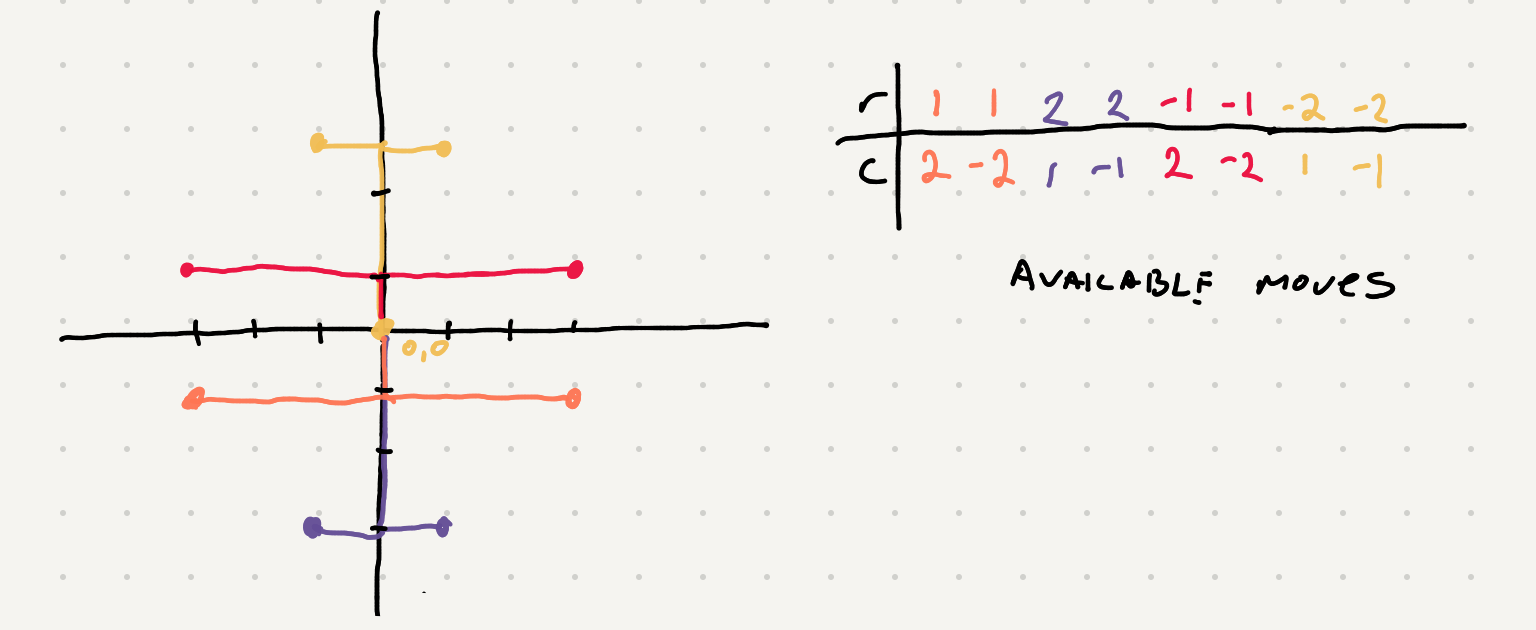 r 1 1 2 2 -1 -1 -2 -2
c 2 -2 1 -1 2 -2 1 -1
AVAILABLE MOVES
0,0